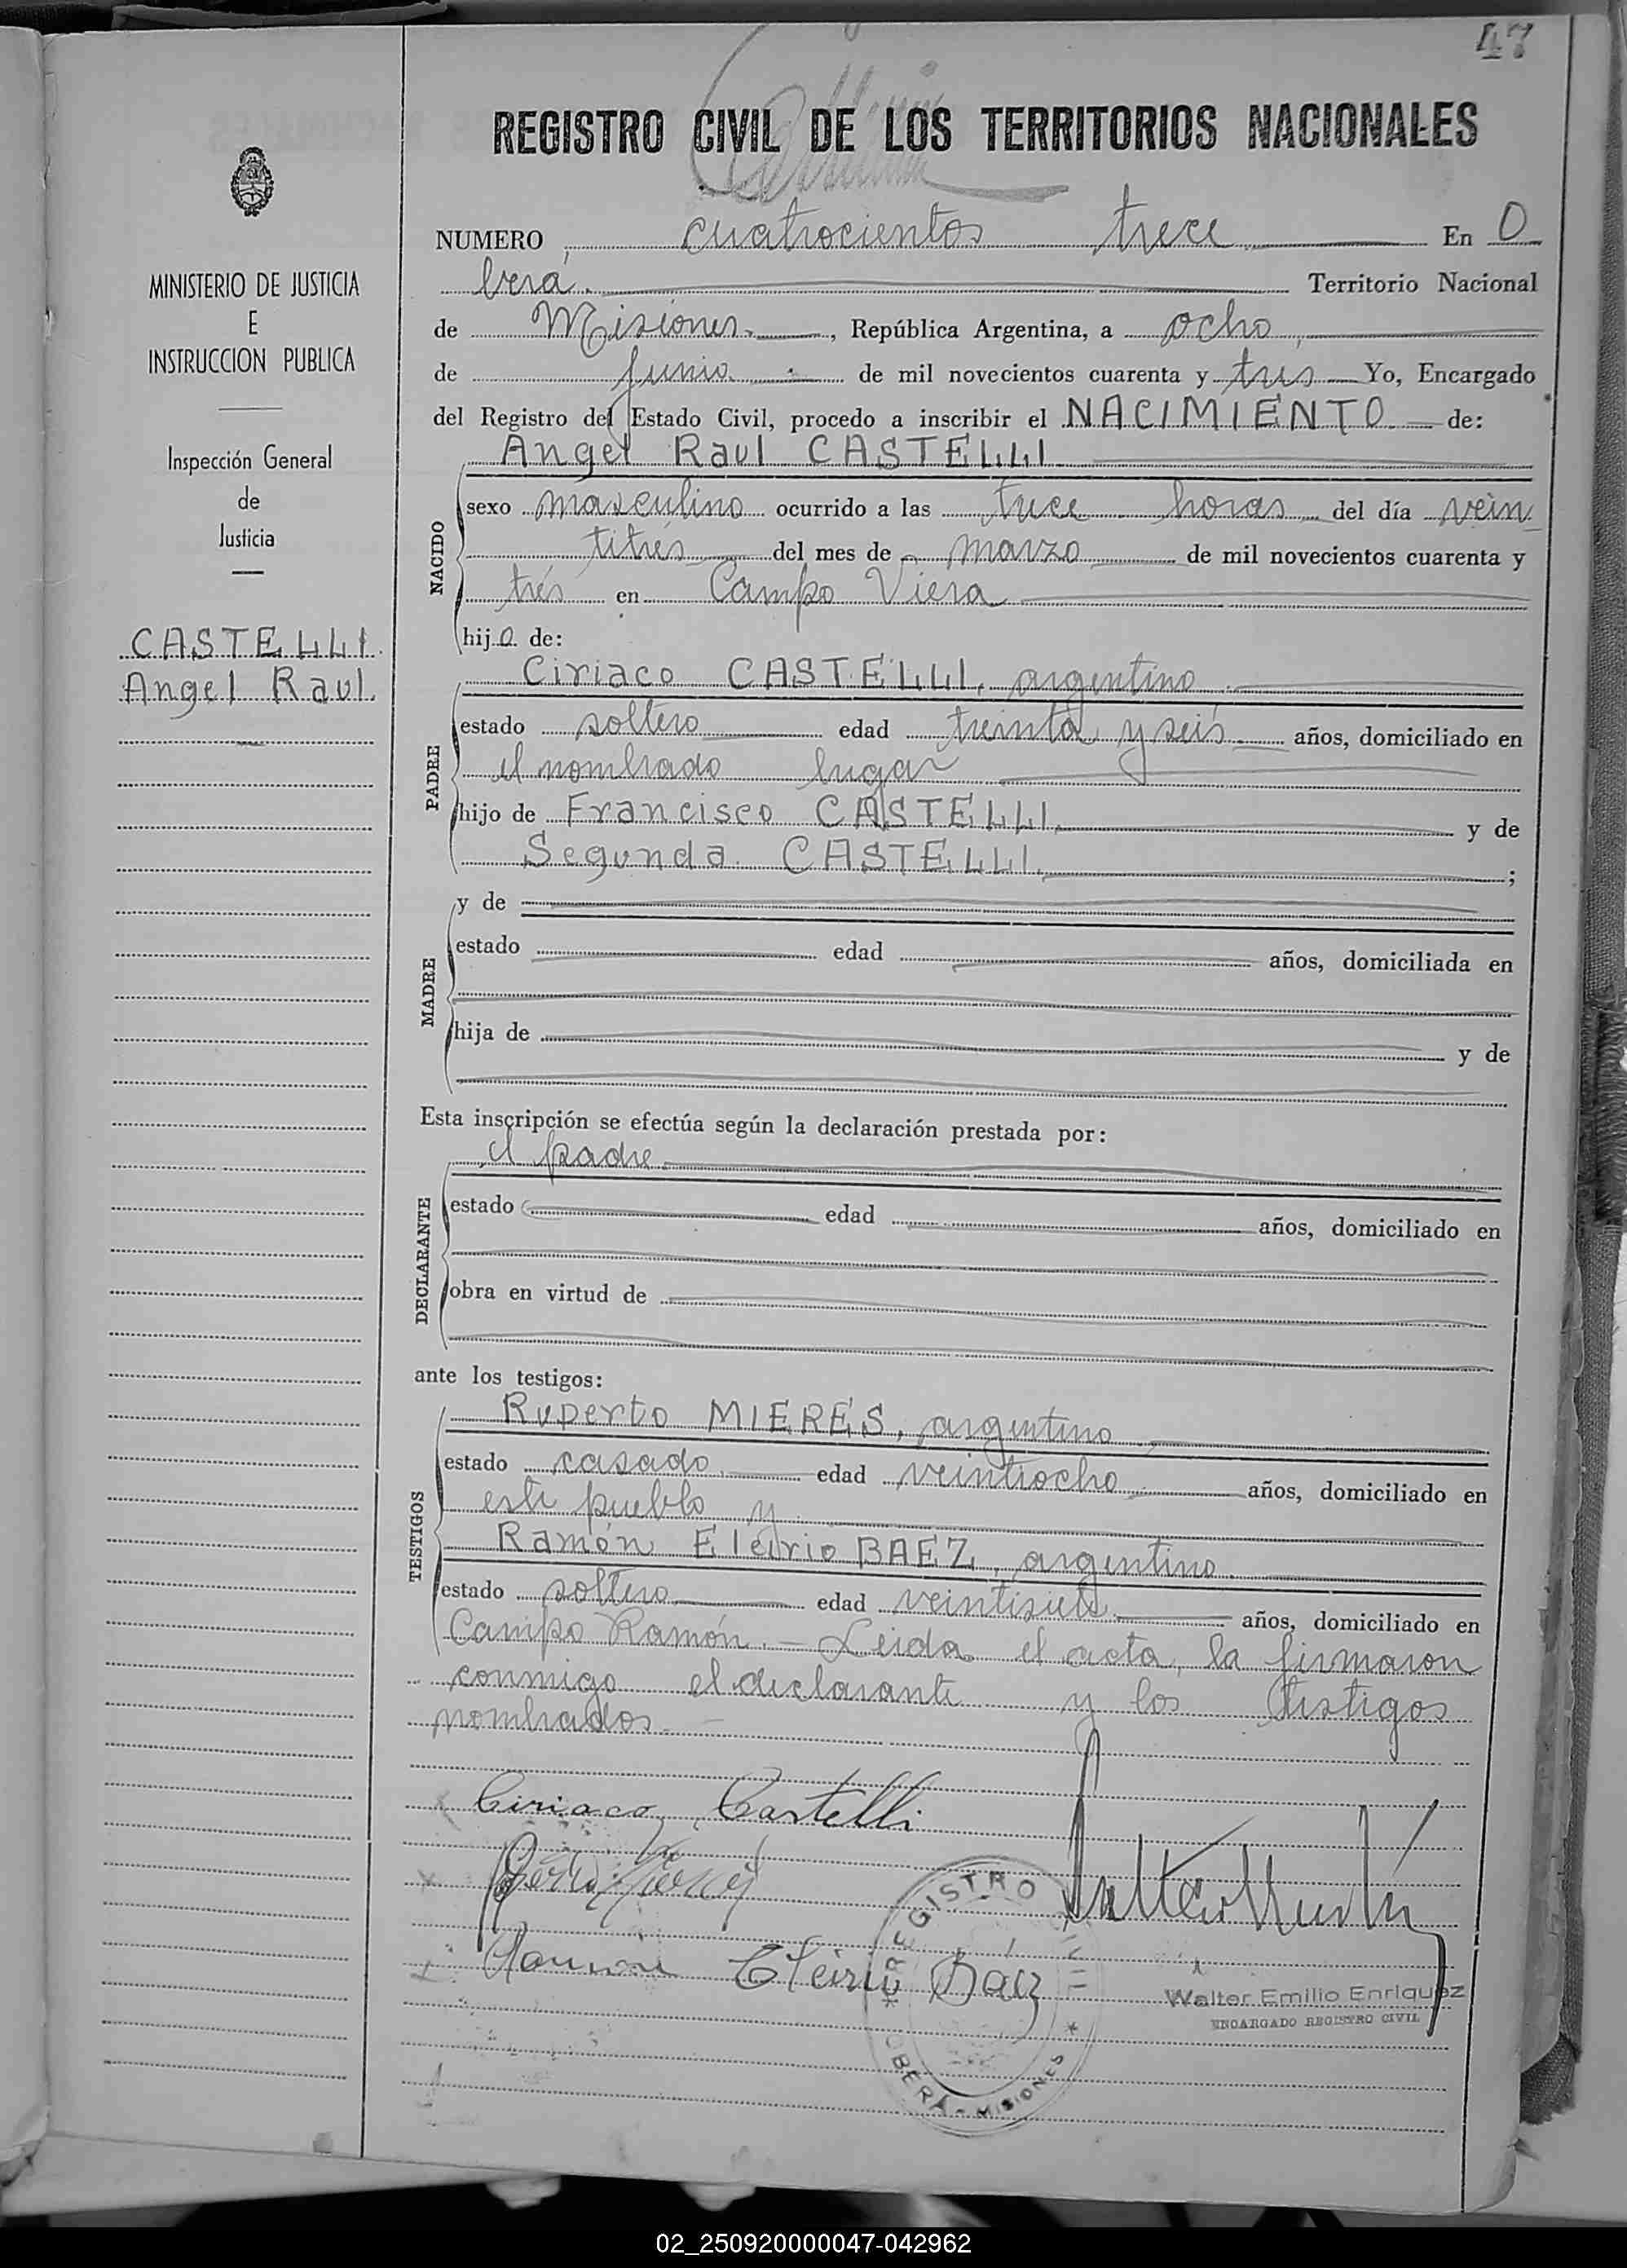 47
REGISTRO CIVIL DE LOS TERRITORIOS NACIONALES
MINISTERIO DE JUSTICIA
E
INSTRUCCION PUBLICA
Inspección General
de
Justicia
CASTELLI
Angel Raul.
NUMERO cuatrocientos trece En O
berá. Territorio Nacional
de Misiones. , República Argentina, a ocho,
de junio de mil novecientos cuarenta y tres Yo, Encargado
del Registro del Estado Civil, procedo a inscribir el NACIMIENTO de:
Angel Raul CASTELLI
NACIDO
sexo masculino ocurrido a las trece horas del día vein
titrés del mes de marzo de mil novecientos cuarenta y
trés en Campo Viera
hijo de:
PADRE
Ciriaco CASTELLI, argentino
estado soltero edad treinta y seis años, domiciliado en
el nombrado lugar
hijo de Francisco CASTELLI, y de
Segunda CASTELLI. ;
MADRE
y de
estado edad años, domiciliada en
hija de y de
Esta inscripción se efectúa según la declaración prestada por:
el padre
DECLARANTE
estado edad años, domiciliado en
obra en virtud de
ante los testigos:
TESTIGOS
Ruperto MIERES, argentino
estado casado edad veintiocho años, domiciliado en
este pueblo y
Ramón Eleirio BAEZ, argentino.
estado soltero edad veintisiete años, domiciliado en
Campo Ramón. - Leida el acta, la firmaron
conmigo el declarante y los testigos
nombrados.
Ciriaco Castelli
Ramón Eleirio Báez
REGISTRO CIVIL
* OBERÁ - MISIONES *
Walter Emilio Enriquez
ENCARGADO REGISTRO CIVIL
02_250920000047-042962